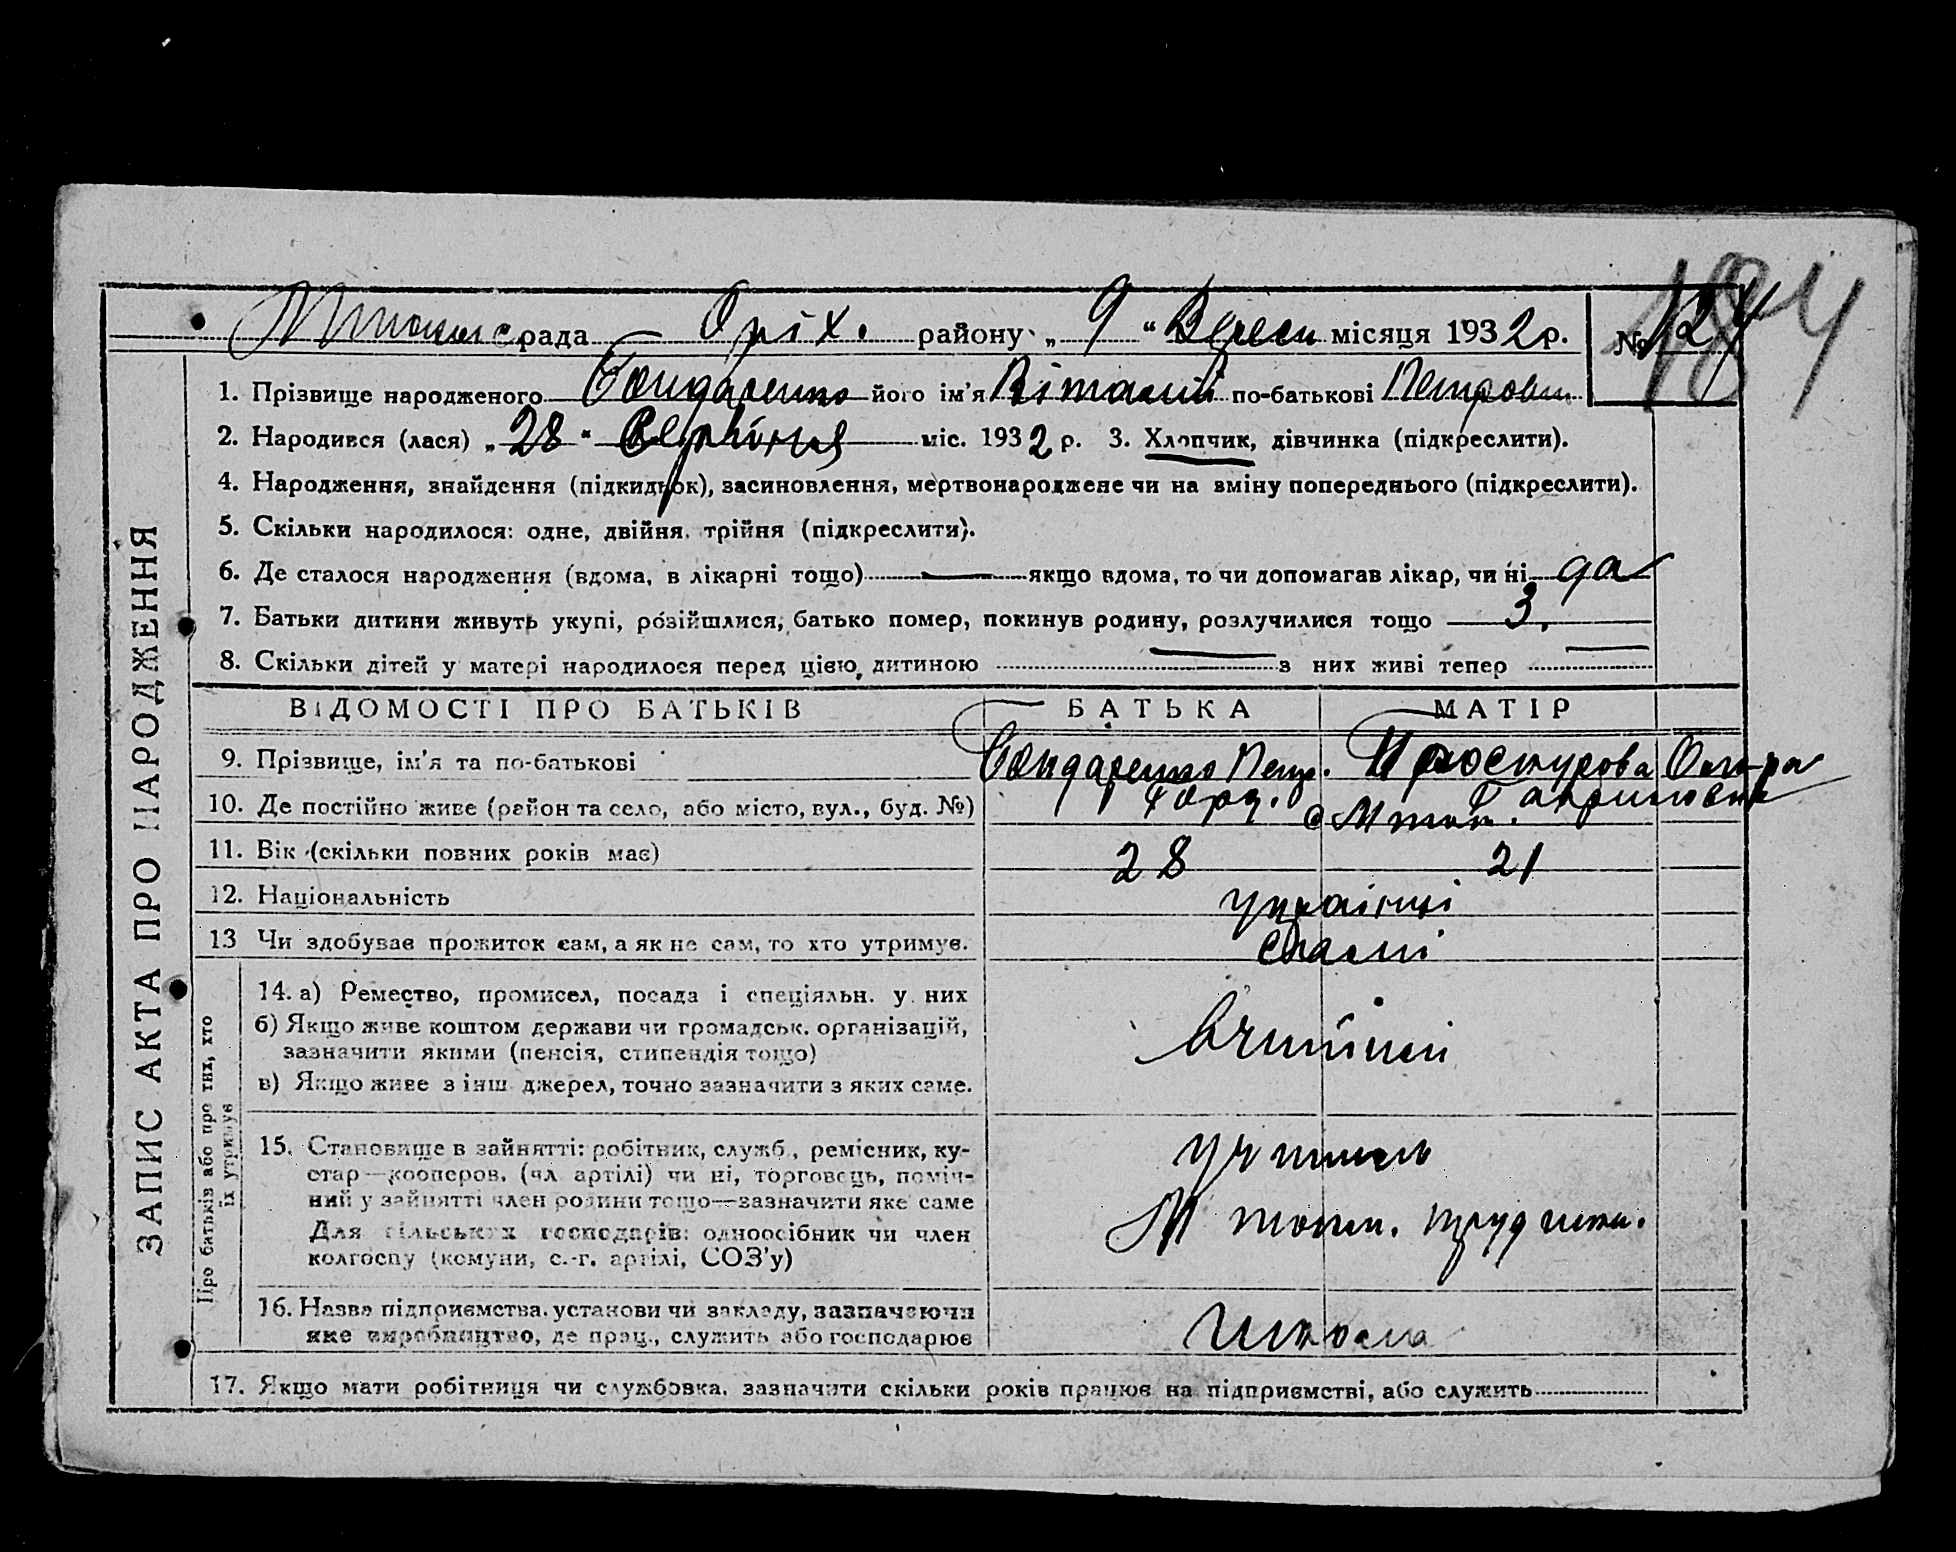 рада Оріх. району „ 9 “ Вересн місяця 1932 р. № 124
184
ЗАПИС АКТА ПРО НАРОДЖЕННЯ
1. Прізвище народженого Бондаренко його ім'я Віталій по-батькові Петрович
2. Народився (лася) „ 28 “ Серпня міс. 1932 р. 3. Хлопчик, дівчинка (підкреслити).
4. Народження, знайдення (підкидьок), засиновлення, мертвонароджене чи на зміну попереднього (підкреслити).
5. Скільки народилося: одне, двійня, трійня (підкреслити).
6. Де сталося народження (вдома, в лікарні тощо) — якщо вдома, то чи допомагав лікар, чи ні да
7. Батьки дитини живуть укупі, розійшлися, батько помер, покинув родину, розлучилися тощо 3.
8. Скільки дітей у матері народилося перед цією дитиною — з них живі тепер —
ВІДОМОСТІ ПРО БАТЬКІВ БАТЬКА МАТІР
9. Прізвище, ім'я та по-батькові Бондаренко Петр. Проскурова
10. Де постійно живе (район та село, або місто, вул., буд. №)
11. Вік (скільки повних років має) 28 21
12. Національність українці
13 Чи здобуває прожиток сам, а як не сам, то хто утримує. самі
Про батьків або про тих, хто їх утримує
14. а) Ремество, промисел, посада і спеціяльн. у них
б) Якщо живе коштом держави чи громадськ. організацій,
зазначити якими (пенсія, стипендія тощо)
в) Якщо живе з інш. джерел, точно зазначити з яких саме.
вчителі
15. Становище в зайнятті: робітник, служб., ремісник, ку-
стар—кооперов. (чл. артілі) чи ні, торговець, поміч-
ний у зайнятті член родини тощо—зазначити яке саме
Для сільських господарів: одноосібник чи член
колгоспу (комуни, с.-г. артілі, СОЗ'у)
учитель
труд
16. Назва підприємства, установи чи закладу, зазначаючи
яке виробництво, де прац., служить або господарює
школа
17. Якщо мати робітниця чи службовка, зазначити скільки років працює на підприємстві, або служить